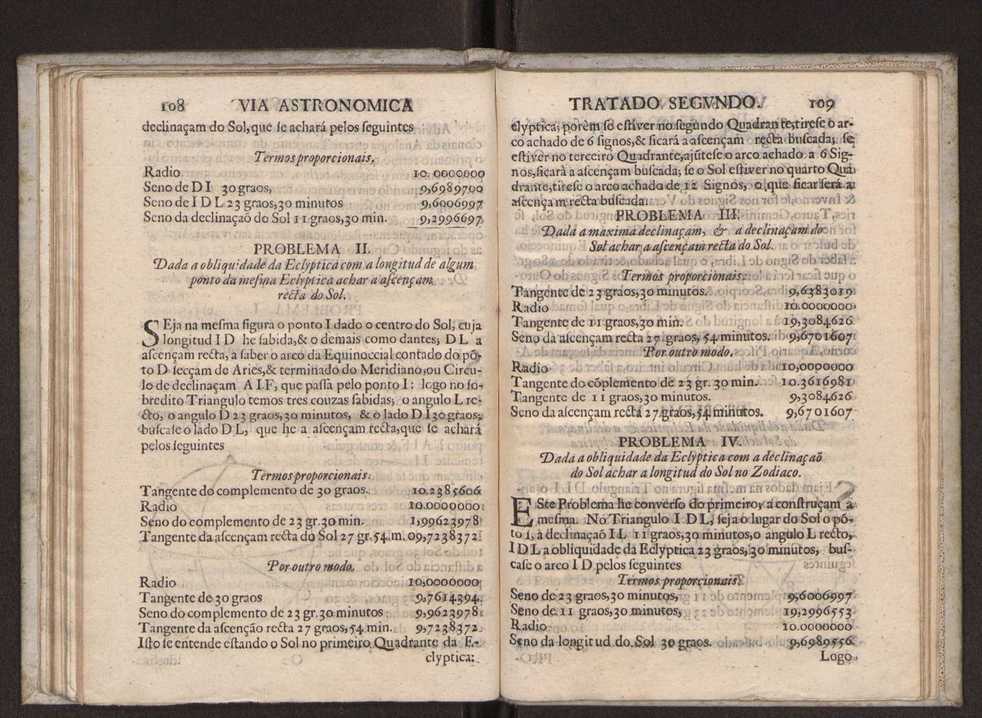 108 VIA ASTRONOMICA
declinaçam do Sol, que se achará pelos seguintes
Termos proporcionais.
Radio 10.0000000
Seno de D I 30 graos, 9,6989700
Seno de I D L 23 graos, 30 minutos 9,6006997
Seno da declinaçaõ do Sol 11 graos, 30 min. 9,2996697
PROBLEMA II.
Dada a obliquidade da Eclyptica com a longitud de algum
ponto da mesma Eclyptica achar a ascençam
recta do Sol.
SEja na mesma figura o ponto I dado o centro do Sol, cuja
longitud I D he sabida, & o demais como dantes; D L a
ascençam recta, a saber o arco da Equinoccial contado do põ-
to D secçam de Aries, & terminado do Meridiano, ou Circu-
lo de declinaçam A I F, que passa pelo ponto I: logo no so-
bredito Triangulo temos tres couzas sabidas, o angulo L re-
cto, o angulo D 23 graos, 30 minutos, & o lado D I 30 graos;
buscase o lado D L, que he a ascençam recta, que se achará
pelos seguintes
Termos proporcionais.
Tangente do complemento de 30 graos. 10.2385606
Radio 10.0000000
Seno do complemento de 23 gr. 30 min. 1,99623978
Tangente da ascençam recta do Sol 27 gr. 54. m. 09,7238372
Por outro modo.
Radio 10,0000000
Tangente de 30 graos 9,7614394
Seno do complemento de 23 gr. 30 minutos 9,9623978
Tangente da ascenção recta 27 graos, 54 min. 9,7238372
Isto se entende estando o Sol no primeiro Quadrante da E-
clyptica:
TRATADO SEGVNDO. 109
clyptica; porèm se estiver no segundo Quadrante, tirese o ar-
co achado de 6 signos, & ficará a ascençam recta buscada; se
estiver no terceiro Quadrante, ajũtese o arco achado a 6 Sig-
nos, ficará a ascençam buscada; se o Sol estiver no quarto Qua
drante, tirese o arco achado de 12 Signos, o que ficar será a
ascença m recta buscada.
PROBLEMA III.
Dada a maxima declinaçam, & a declinaçam do
Sol achar a ascençam recta do Sol.
Termos proporcionais.
Tangente de 23 graos, 30 minutos. 9,6383019
Radio 10.0000000
Tangente de 11 graos, 30 min. 19,3084626
Seno da ascençam recta 27 graos, 54 minutos. 9,6701607
Por outro modo.
Radio 10,0000000
Tangente do cõplemento de 23 gr. 30 min. 10.3616981
Tangente de 11 graos, 30 minutos. 9,3084626
Seno da ascençam recta 27 graos, 54 minutos. 9,6701607
PROBLEMA IV.
Dada a obliquidade da Eclyptica com a declinaçaõ
do Sol achar a longitud do Sol no Zodiaco.
ESte Problema he converso do primeiro, a construçam a
mesma. No Triangulo I D L, seja o lugar do Sol o põ-
to I, a declinaçaõ I L 11 graos, 30 minutos, o angulo L recto,
I D L a obliquidade da Eclyptica 23 graos, 30 minutos, bus-
case o arco I D pelos seguintes
Termos proporcionais.
Seno de 23 graos, 30 minutos, 9,6006997
Seno de 11 graos, 30 minutos, 19,2996553
Radio 10.0000000
Seno da longitud do Sol 30 graos. 9,6989556
Logo